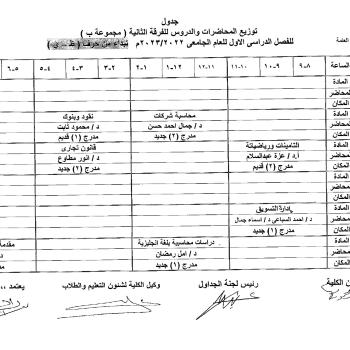 جدول
توزيع المحاضرات والدروس للفرقة الثانية ( مجموعة ب )
للفصل الدراسى الاول للعام الجامعى ٢٠٢٣/٢٠٢٢م
العامة
الساعة ٨-٩ ٩-١٠ ١٠-١١ ١١-١٢ ١٢-١ ١-٢ ٢-٣ ٣-٤ ٤-٥ ٥-٦
المادة
المحاضر
المكان
المادة محاسبة شركات نقود وبنوك
المحاضر د / جمال احمد حسن د / محمود ثابت
المكان مدرج (٢) جديد مدرج (١) قديم
المادة التأمينات ورياضياتة قانون تجارى
المحاضر أ.د / عزة عبدالسلام د / انور مطاوع
المكان مدرج (٢) قديم مدرج (١) جديد
المادة
المحاضر
المكان
المادة إدارة التسويق
المحاضر د / احمد السباعى د / اسماء جمال
المكان مدرج (١) جديد
المادة دراسات محاسبية بلغة انجليزية مقدمة
المحاضر د / امل رمضان
المكان مدرج (١) جديد
الكلية رئيس لجنة الجداول وكيل الكلية لشئون التعليم والطلاب يعتمد ،،